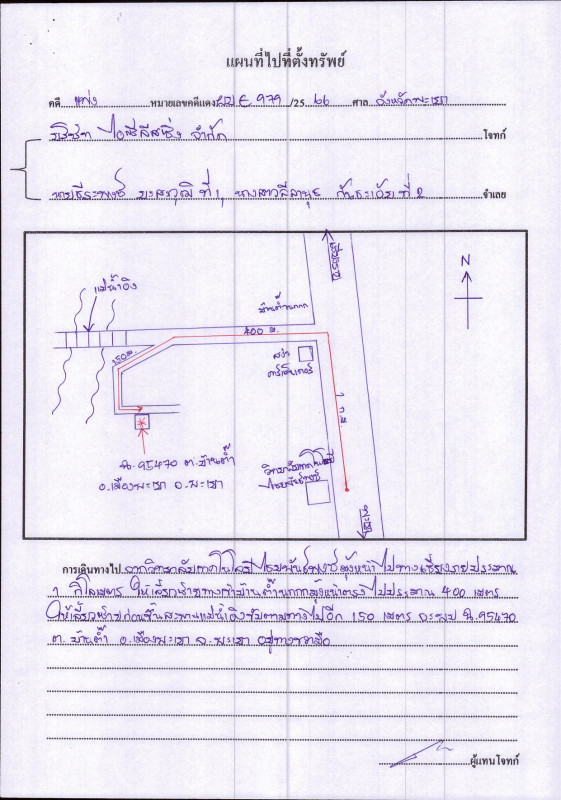 แผนที่ไปที่ตั้งทรัพย์
คดี แพ่ง หมายเลขคดีแดง ผบE.979 /25 66 ศาล จังหวัดพะเยา
บริษัท ไอซีลีสซิ่ง จำกัด โจทก์
ที่ 1, นางสาว ที่ 2 จำเลย
เชียงราย
N
แม่น้ำอิง
บ้านต๊ำ
400 ม.
150 ม.
สวน
1 ก.ม
วิทยาลัยเทคโนโลยี
ไชยพันธ์พงศ์
ฉ.95470 ต.บ้านต๊ำ
อ.เมืองพะเยา จ.พะเยา
พะเยา
การเดินทางไป จากวิทยาลัยเทคโนโลยีไชยพันธ์พงศ์มุ่งหน้าไปทางเชียงรายประมาณ
1 กิโลเมตร ให้เลี้ยวซ้ายทางเข้าบ้านต๊ำ มุ่งหน้าตรงไปประมาณ 400 เมตร
ให้เลี้ยวซ้ายก่อนขึ้นสะพานแม่น้ำอิงขับตามทางไปอีก 150 เมตร จะพบ ฉ.95470
ต.บ้านต๊ำ อ.เมืองพะเยา จ.พะเยา อยู่ทางขวามือ
ผู้แทนโจทก์